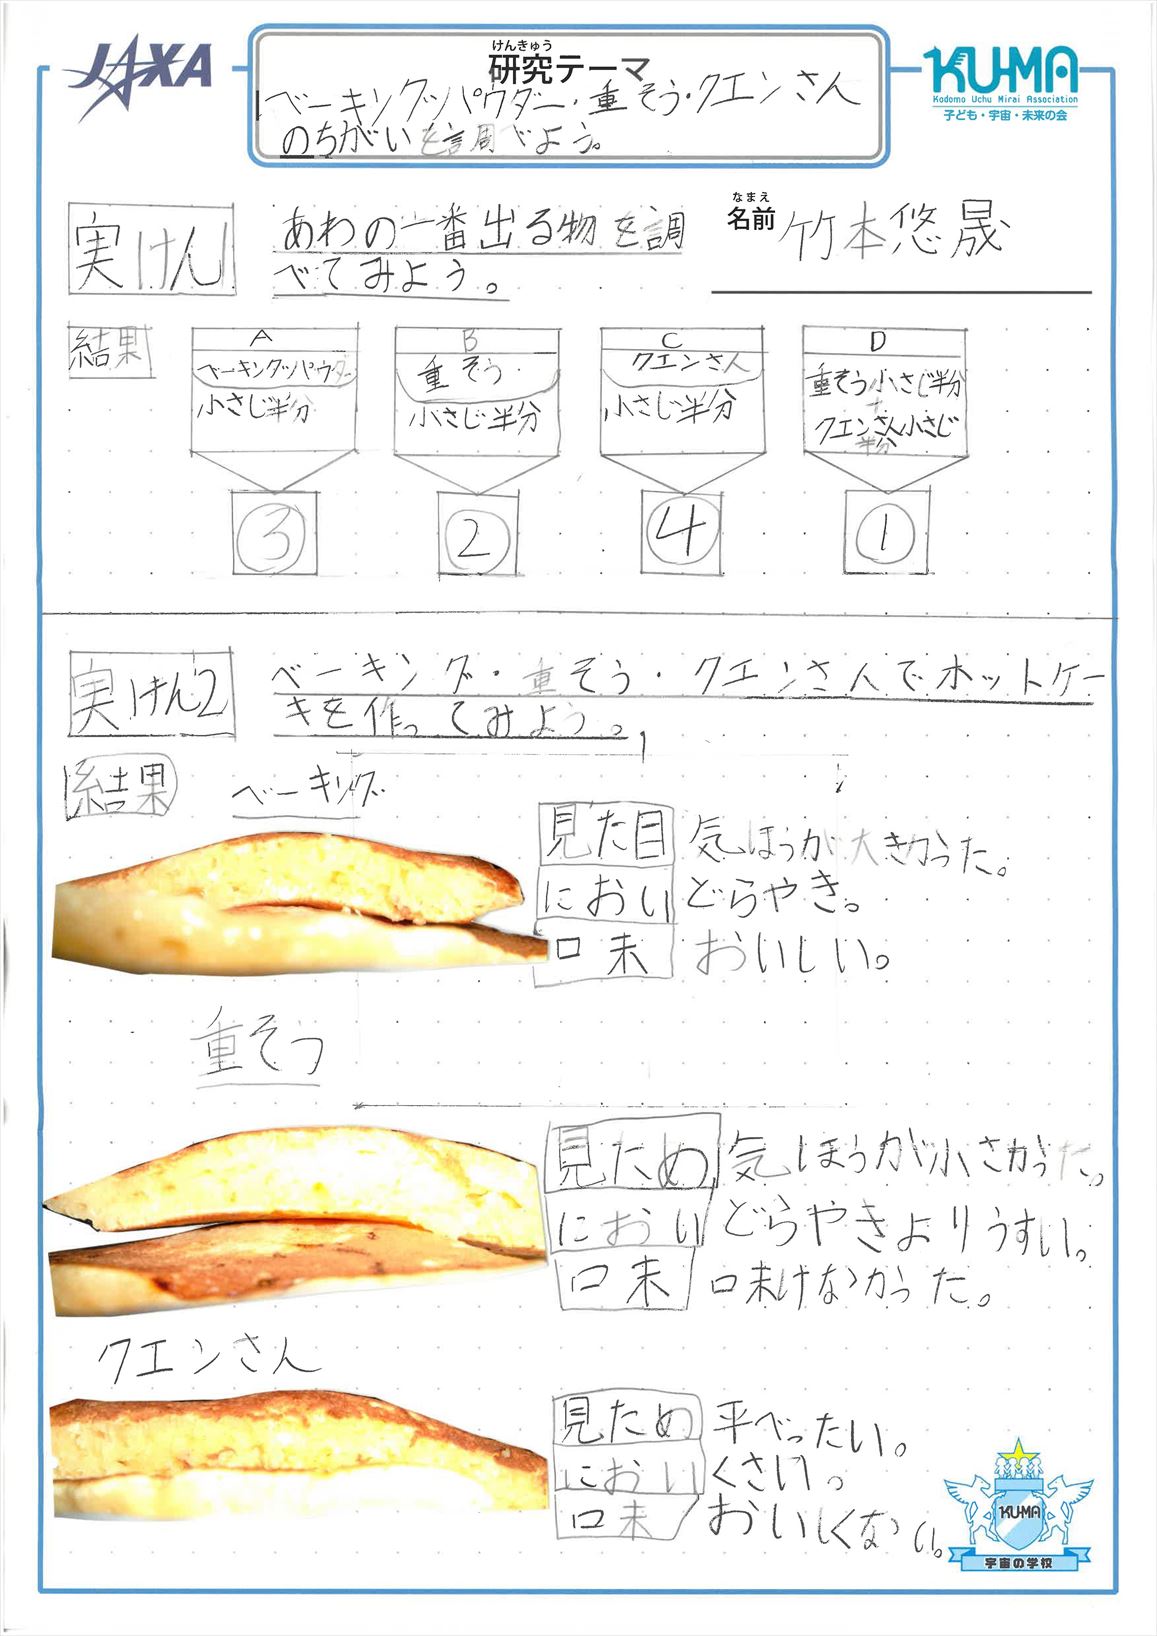 JAXA
けんきゅう
研究テーマ
KU-MA
Kodomo Uchu Mirai Association
子ども・宇宙・未来の会
ベーキングパウダー・重そう・クエンさん
のちがいを調べよう。
なまえ
名前 竹本悠晟
実けん1 あわの一番出る物を調
べてみよう。
結果
A
ベーキングパウダー
小さじ半分
③
B
重そう
小さじ半分
②
C
クエンさん
小さじ半分
④
D
重そう小さじ半分
+
クエンさん小さじ
半分
①
実けん2 ベーキング・重そう・クエンさんでホットケー
キを作ってみよう。
結果 ベーキング
見た目 気ほうが大きかった。
におい どらやき。
口未 おいしい。
重そう
見ため 気ほうが小さかった。
におい どらやきよりうすい。
口未 口未けなかった。
クエンさん
見ため 平べったい。
におい くさい。
口未 おいしくない。
KU-MA
宇宙の学校